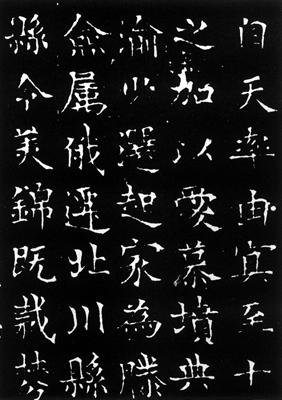 自天率由冥至十
之加以愛慕墳典
渝少選起家為滕
僉属俄遷北川縣
縣令美錦既裁棼